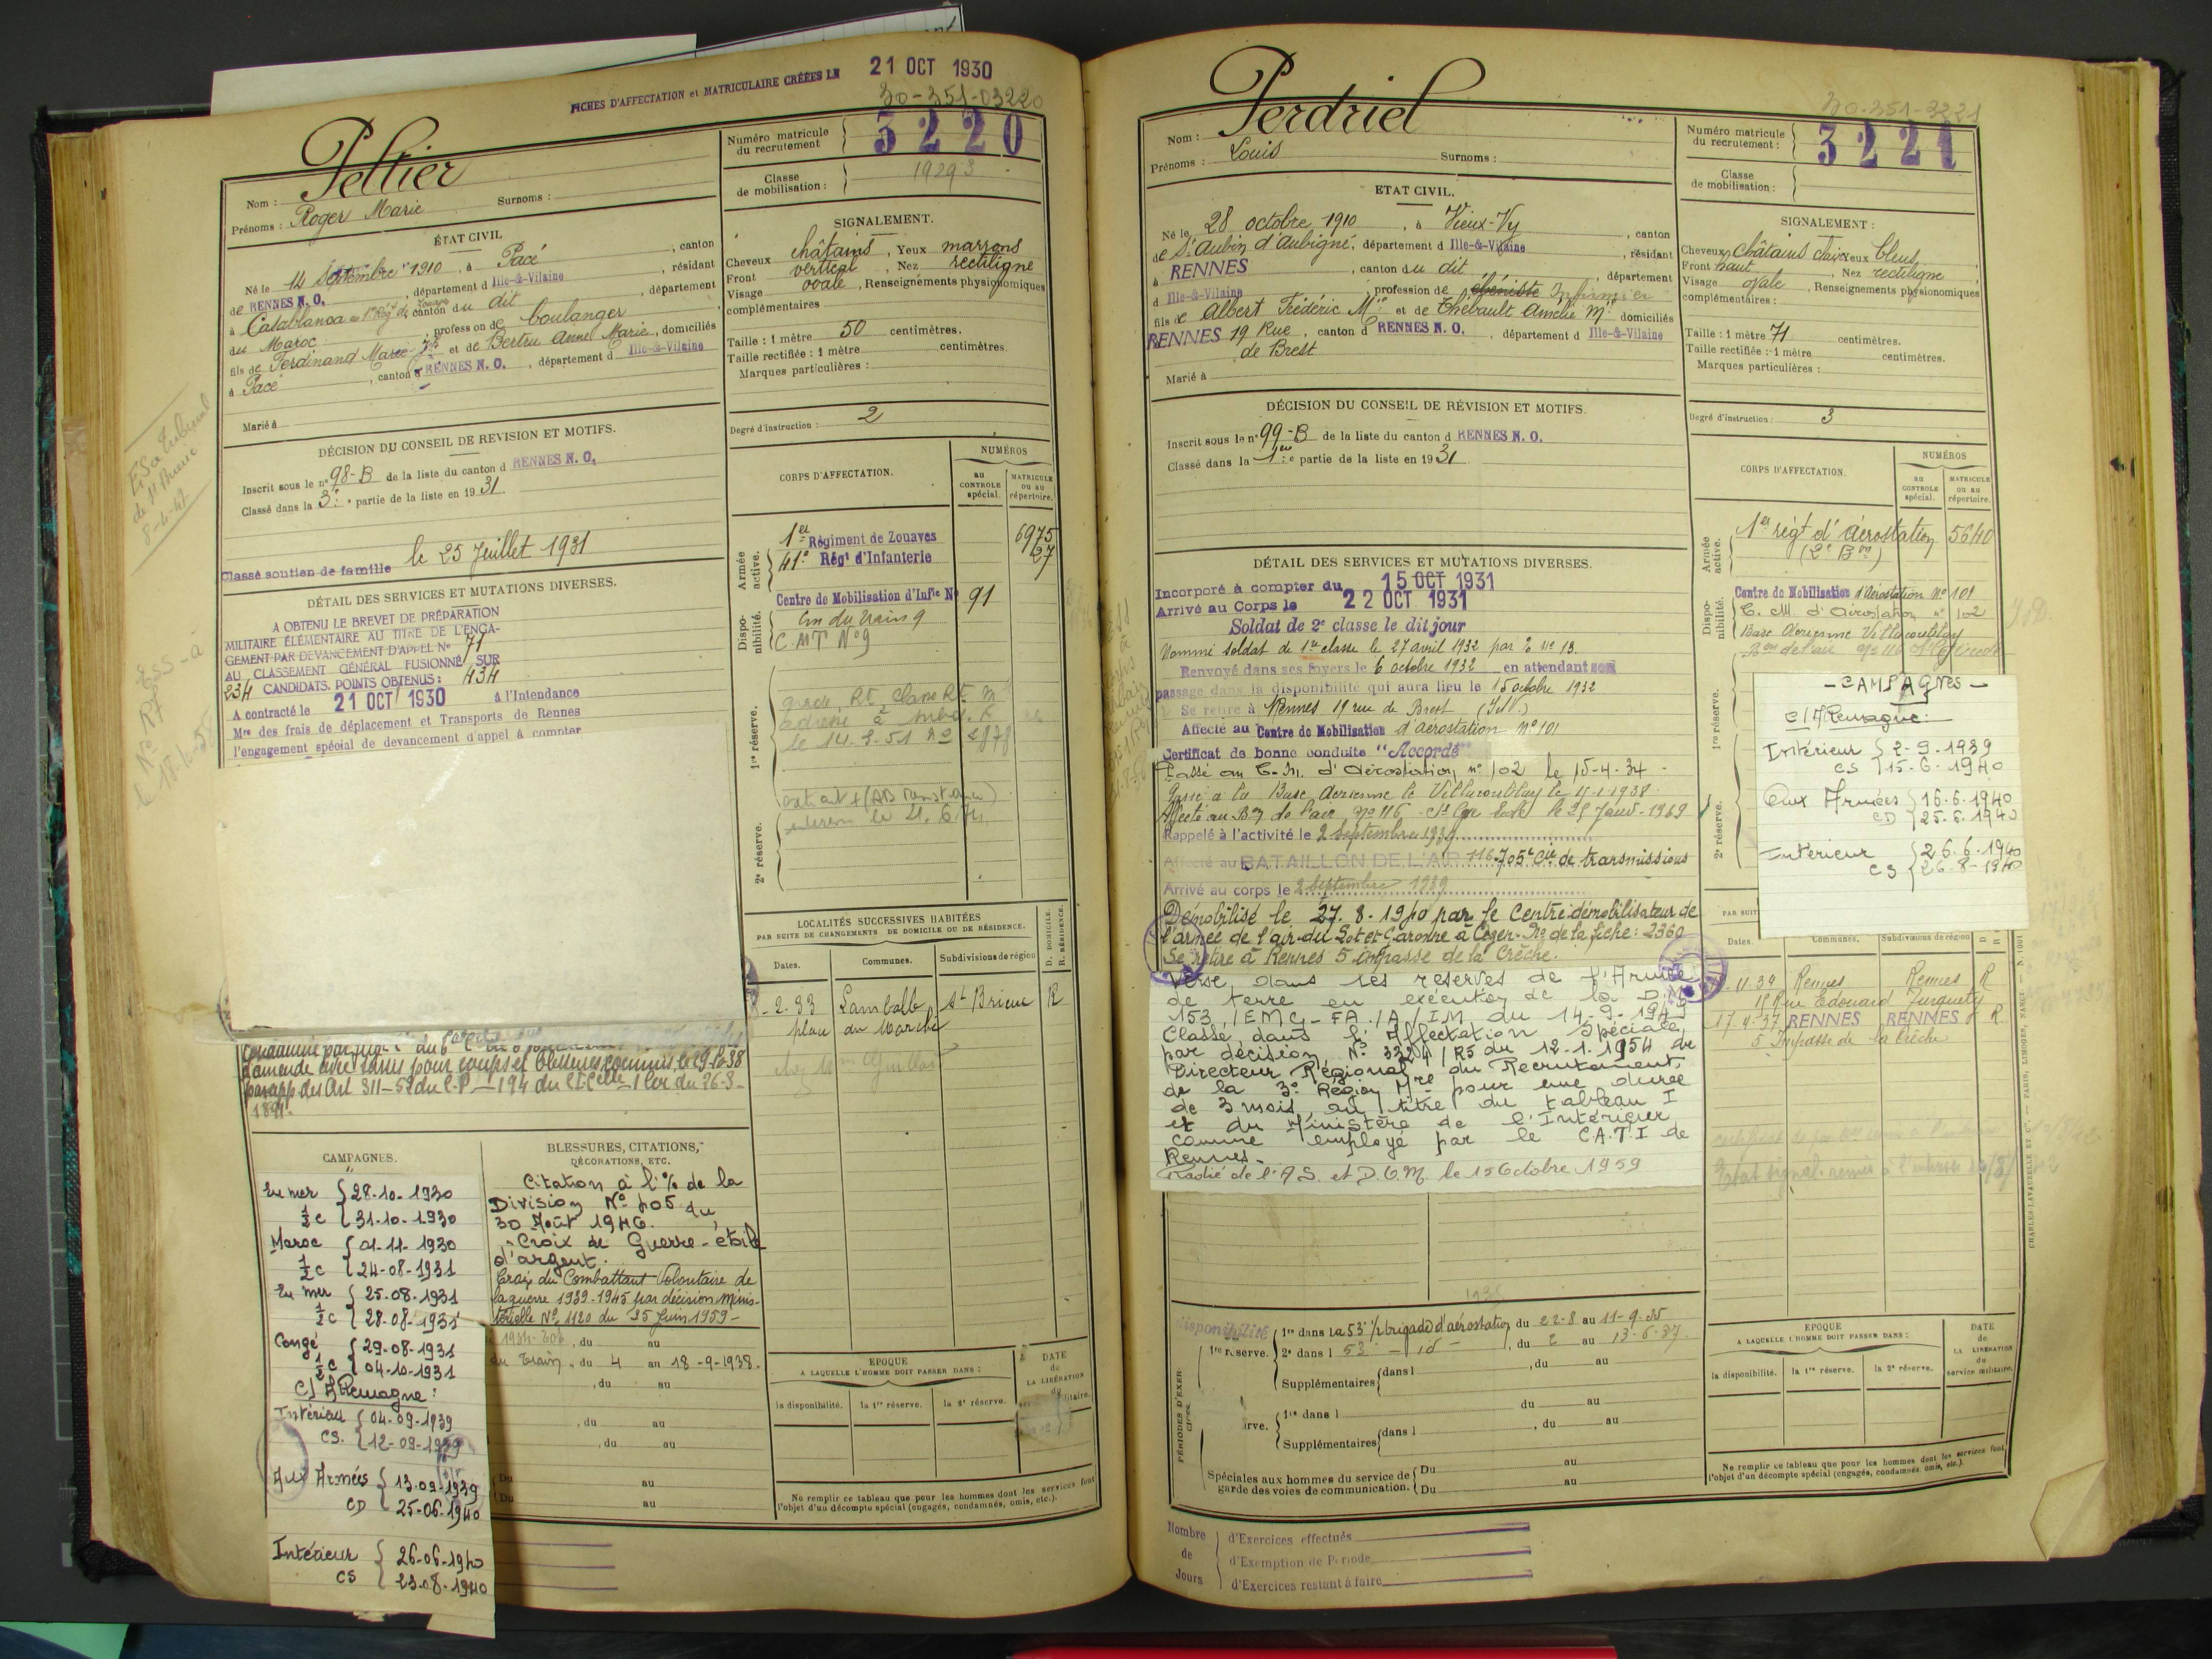 FICHES D'AFFECTATION et MATRICULAIRE CRÉÉES LE 21 OCT 1930
30-351-03220
Peltier
Nom :
Prénoms : Roger Marie Surnoms :
Numéro matricule du recrutement 3220
Classe de mobilisation : 1929-3
ÉTAT CIVIL
Né le 14 Septembre 1910, à Pacé, canton
de RENNES N. O., département d Ille-&-Vilaine, résidant
à Casablanca au 1er Rég. de Zouaves canton du dit, département
du Maroc, profession de boulanger
fils de Ferdinand Marie et de Bertru Anne Marie, domiciliés
à Pacé, canton d RENNES N. O., département d Ille-&-Vilaine
Marié à
SIGNALEMENT.
Cheveux châtains, Yeux marrons
Front vertical, Nez rectiligne
Visage ovale, Renseignements physionomiques
complémentaires
Taille : 1 mètre 50 centimètres.
Taille rectifiée : 1 mètre centimètres.
Marques particulières :
Degré d'instruction : 2
DÉCISION DU CONSEIL DE REVISION ET MOTIFS.
Inscrit sous le n° 98-B de la liste du canton d RENNES N. O.
Classé dans la 3e partie de la liste en 1931.
Classé soutien de famille le 25 Juillet 1931
DÉTAIL DES SERVICES ET MUTATIONS DIVERSES.
A OBTENU LE BREVET DE PRÉPARATION
MILITAIRE ÉLÉMENTAIRE AU TITRE DE L'ENGA-
GEMENT PAR DEVANCEMENT D'APPEL N° 71
AU CLASSEMENT GÉNÉRAL FUSIONNÉ SUR
234 CANDIDATS. POINTS OBTENUS : 434
A contracté le 21 OCT 1930 à l'Intendance
Mre des frais de déplacement et Transports de Rennes
l'engagement spécial de devancement d'appel à compter
d'amende avec sursis pour coups et blessures commis le 29-10-38
par app des Art 311-52 du C.P - 194 du C.I.Celle - 1 Loi du 26-3-
1891.
CORPS D'AFFECTATION.
NUMÉROS
au CONTROLE spécial.
MATRICULE ou au répertoire.
Armée active.
1er Régiment de Zouaves 6975
41e Régt d'Infanterie 27
Disponibilité.
Centre de Mobilisation d'Infie N° 91
C.M.T N°9
1re réserve.
le 14.3.51 N° 2878
2e réserve.
LOCALITÉS SUCCESSIVES HABITÉES
PAR SUITE DE CHANGEMENTS DE DOMICILE OU DE RÉSIDENCE.
Dates. Communes. Subdivisions de région D. DOMICILE. R. RÉSIDENCE.
8-2-33 Lamballe St Brieuc R
place du Marché
CAMPAGNES.
En mer 28-10-1930
½ c 31-10-1930
Maroc 01-11-1930
½ c 24-08-1931
En mer 25-08-1931
½ c 28-08-1931
Congé 29-08-1931
½ c 04-10-1931
C/ Allemagne :
Intérieur 04-09-1939
CS. 12-09-1939
Aux Armées 13-09-1939
CD 25-06-1940
Intérieur 26-06-1940
CS 23-08-1940
BLESSURES, CITATIONS,
DÉCORATIONS, ETC.
Citation à l'% de la
Division N° 405 du
30 Août 1946.
Croix de Guerre - étoile
d'argent.
Croix du Combattant Volontaire de
la guerre 1939-1945 par décision minis-
térielle N° 1120 du 25 Juin 1959-
, du au
du Train, du 4 au 18-9-1938.
, du au
, du au
, du au
Du au
Du au
EPOQUE
A LAQUELLE L'HOMME DOIT PASSER DANS :
la disponibilité. la 1re réserve. la 2e réserve.
DATE du LA LIBÉRATION
Ne remplir ce tableau que pour les hommes dont les services font
l'objet d'un décompte spécial (engagés, condamnés, omis, etc.).
30-351-3221
Perdriel
Nom :
Prénoms : Louis Surnoms :
Numéro matricule du recrutement : 3221
Classe de mobilisation :
ETAT CIVIL.
Né le 28 octobre 1910, à Vieux-Vy, canton
de St Aubin d'Aubigné, département d Ille-&-Vilaine, résidant
à RENNES, canton du dit, département
d Ille-&-Vilaine, profession de ébéniste Infirmier
fils de Albert Frédéric Mie et de Thébault Amélie Mie domiciliés
RENNES 19 Rue, canton d RENNES N. O., département d Ille-&-Vilaine
de Brest
Marié à
SIGNALEMENT :
Cheveux châtains clairs Yeux bleus
Front haut, Nez rectiligne
Visage ovale, Renseignements physionomiques
complémentaires :
Taille : 1 mètre 71 centimètres.
Taille rectifiée : 1 mètre centimètres.
Marques particulières :
Degré d'instruction : 3
DÉCISION DU CONSEIL DE RÉVISION ET MOTIFS.
Inscrit sous le n° 99-B de la liste du canton d RENNES N. O.
Classé dans la 1re partie de la liste en 1931
DÉTAIL DES SERVICES ET MUTATIONS DIVERSES.
Incorporé à compter du 15 OCT 1931
Arrivé au Corps le 22 OCT 1931
Soldat de 2e classe le dit jour
Nommé soldat de 1re classe le 27 avril 1932 par % N° 13
Renvoyé dans ses foyers le 6 octobre 1932 en attendant son
passage dans la disponibilité qui aura lieu le 15 octobre 1932
Se retire à Rennes 19 rue de Brest
Affecté au Centre de Mobilisation d'aérostation N° 101
Certificat de bonne conduite "Accordé"
Passé au C.M. d'Aérostation n° 102 le 15-4-34
Passé à la Base Aérienne de Villacoublay le
Rappelé à l'activité le 2 Septembre 1939
Affecté au BATAILLON DE L'AIR 116 - 705e Cie de transmissions
Arrivé au corps le 2 Septembre 1939
Démobilisé le 27.8.1940 par le Centre démobilisateur de
l'armée de l'air du Lot et Garonne à N° de la fiche : 2360
Se retire à Rennes 5 impasse de la Crèche.
Versé dans les réserves de l'Armée
de terre en exécution de la D.M
153 /EMG-FA/A/IM du 14-9-1949
Classé dans l'Affectation Spéciale,
par décision N° 3324/RS du 12.1.1954 de
Directeur Régional du Recrutement
de la 3e Région Mre pour une durée
de 3 mois, au titre du tableau I
et du Ministère de l'Intérieur
comme employé par le C.A.T.I de
Rennes.
Radié de l'A.S. et D.O.M. le 15 Octobre 1959
CORPS D'AFFECTATION.
NUMÉROS
au CONTROLE spécial.
MATRICULE ou au répertoire.
Armée active.
1er régt d'Aérostation 5640
(2e Bon)
Disponibilité.
Centre de Mobilisation d'Aérostation N° 101
C. M. d'Aérostation n° 102
Base Aérienne Villacoublay
1re réserve.
2e réserve.
- CAMPAGNES -
C/ Allemagne :
Intérieur 2-9-1939
CS 15-6-1940
Aux Armées 16-6-1940
CD 25-6-1940
Intérieur 26-6-1940
CS 26-8-1940
PAR SUIT
Dates. Communes. Subdivisions de région
11.34 Rennes Rennes R
18 Rue Edouard Turquety
17-4-37 RENNES RENNES R
5 Impasse de la Crèche
PÉRIODES D'EXERCICES.
disponibilité
1re réserve.
1re dans la 53e 1/2 brigade d'aérostation du 22-8 au 11-9-35
2e dans l 53 - id -, du 2 au 13-6-37
Supplémentaires dans l, du au
, du au
1re dans l du au
Supplémentaires dans l, du au
Spéciales aux hommes du service de
garde des voies de communication.
Du au
Du au
EPOQUE
A LAQUELLE L'HOMME DOIT PASSER DANS :
la disponibilité. la 1re réserve. la 2e réserve.
DATE DE LA LIBÉRATION du service militaire.
Ne remplir ce tableau que pour les hommes dont les services font
l'objet d'un décompte spécial (engagés, condamnés, omis, etc.).
Nombre de Jours
d'Exercices effectués
d'Exemption de Période
d'Exercices restant à faire
CHARLES-LAVAUZELLE ET Cie. — PARIS, LIMOGES, NANCY